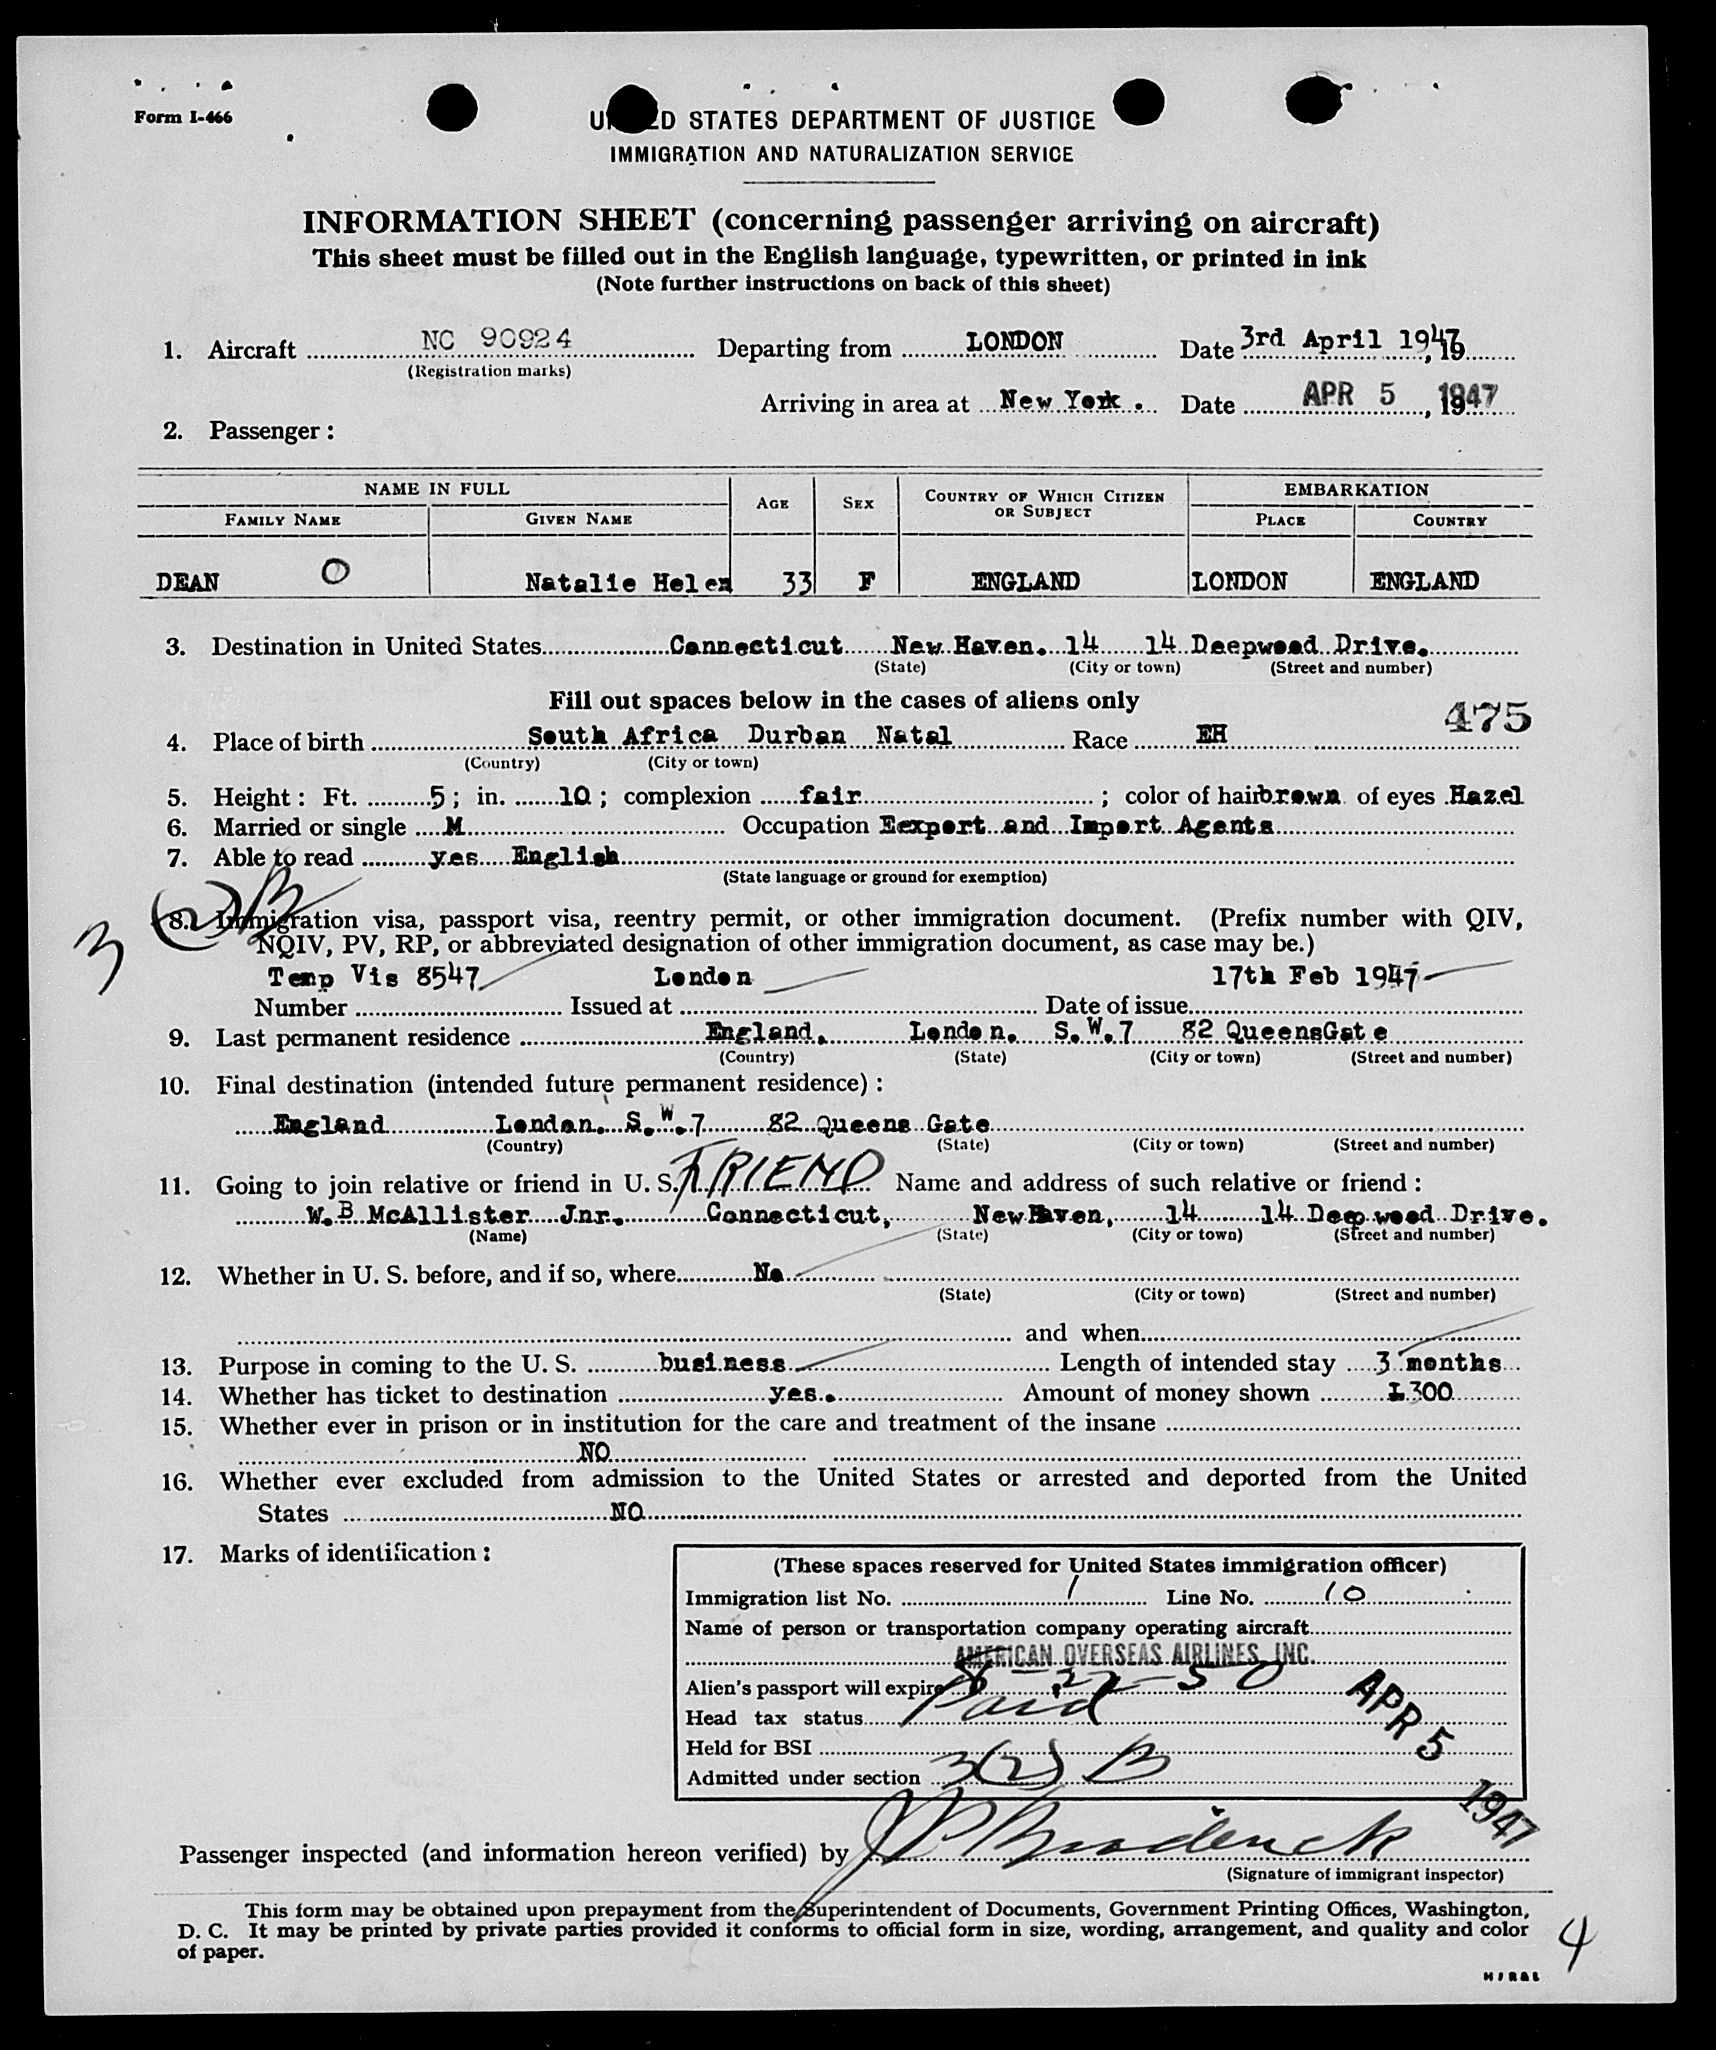 Form I-466
UNITED STATES DEPARTMENT OF JUSTICE
IMMIGRATION AND NATURALIZATION SERVICE
INFORMATION SHEET (concerning passenger arriving on aircraft)
This sheet must be filled out in the English language, typewritten, or printed in ink
(Note further instructions on back of this sheet)
1. Aircraft NC 90924 Departing from LONDON Date 3rd April 1947, 19
(Registration marks)
Arriving in area at New York. Date APR 5, 1947
2. Passenger:
NAME IN FULL EMBARKATION
FAMILY NAME GIVEN NAME AGE SEX COUNTRY OF WHICH CITIZEN OR SUBJECT PLACE COUNTRY
DEAN O Natalie Helen 33 F ENGLAND LONDON ENGLAND
3. Destination in United States Connecticut New Haven. 14 14 Deepwood Drive.
(State) (City or town) (Street and number)
Fill out spaces below in the cases of aliens only
475
4. Place of birth South Africa Durban Natal Race EH
(Country) (City or town)
5. Height: Ft. 5; in. 10; complexion fair; color of hair brown of eyes Hazel
6. Married or single M Occupation Eexport and Import Agents
7. Able to read yes English
(State language or ground for exemption)
3 (2) B
8. Immigration visa, passport visa, reentry permit, or other immigration document. (Prefix number with QIV,
NQIV, PV, RP, or abbreviated designation of other immigration document, as case may be.)
Temp Vis 8547 London 17th Feb 1947
Number Issued at Date of issue
9. Last permanent residence England, London. S.W.7 82 QueensGate
(Country) (State) (City or town) (Street and number)
10. Final destination (intended future permanent residence):
England London. S.W.7 82 Queens Gate
(Country) (State) (City or town) (Street and number)
11. Going to join relative or friend in U. S. FRIEND Name and address of such relative or friend:
W.B McAllister Jnr. Connecticut, New Haven, 14 14 Deepwood Drive.
(Name) (State) (City or town) (Street and number)
12. Whether in U. S. before, and if so, where No
(State) (City or town) (Street and number)
and when
13. Purpose in coming to the U. S. business Length of intended stay 3 months
14. Whether has ticket to destination yes. Amount of money shown £300
15. Whether ever in prison or in institution for the care and treatment of the insane
NO
16. Whether ever excluded from admission to the United States or arrested and deported from the United
States NO
17. Marks of identification:
(These spaces reserved for United States immigration officer)
Immigration list No. 1 Line No. 10
Name of person or transportation company operating aircraft
AMERICAN OVERSEAS AIRLINES, INC.
Alien's passport will expire 8-22-50
Head tax status Paid
Held for BSI
Admitted under section 3(2) B
APR 5 1947
Passenger inspected (and information hereon verified) by J P Broderick
(Signature of immigrant inspector)
This form may be obtained upon prepayment from the Superintendent of Documents, Government Printing Offices, Washington,
D. C. It may be printed by private parties provided it conforms to official form in size, wording, arrangement, and quality and color
of paper.
4